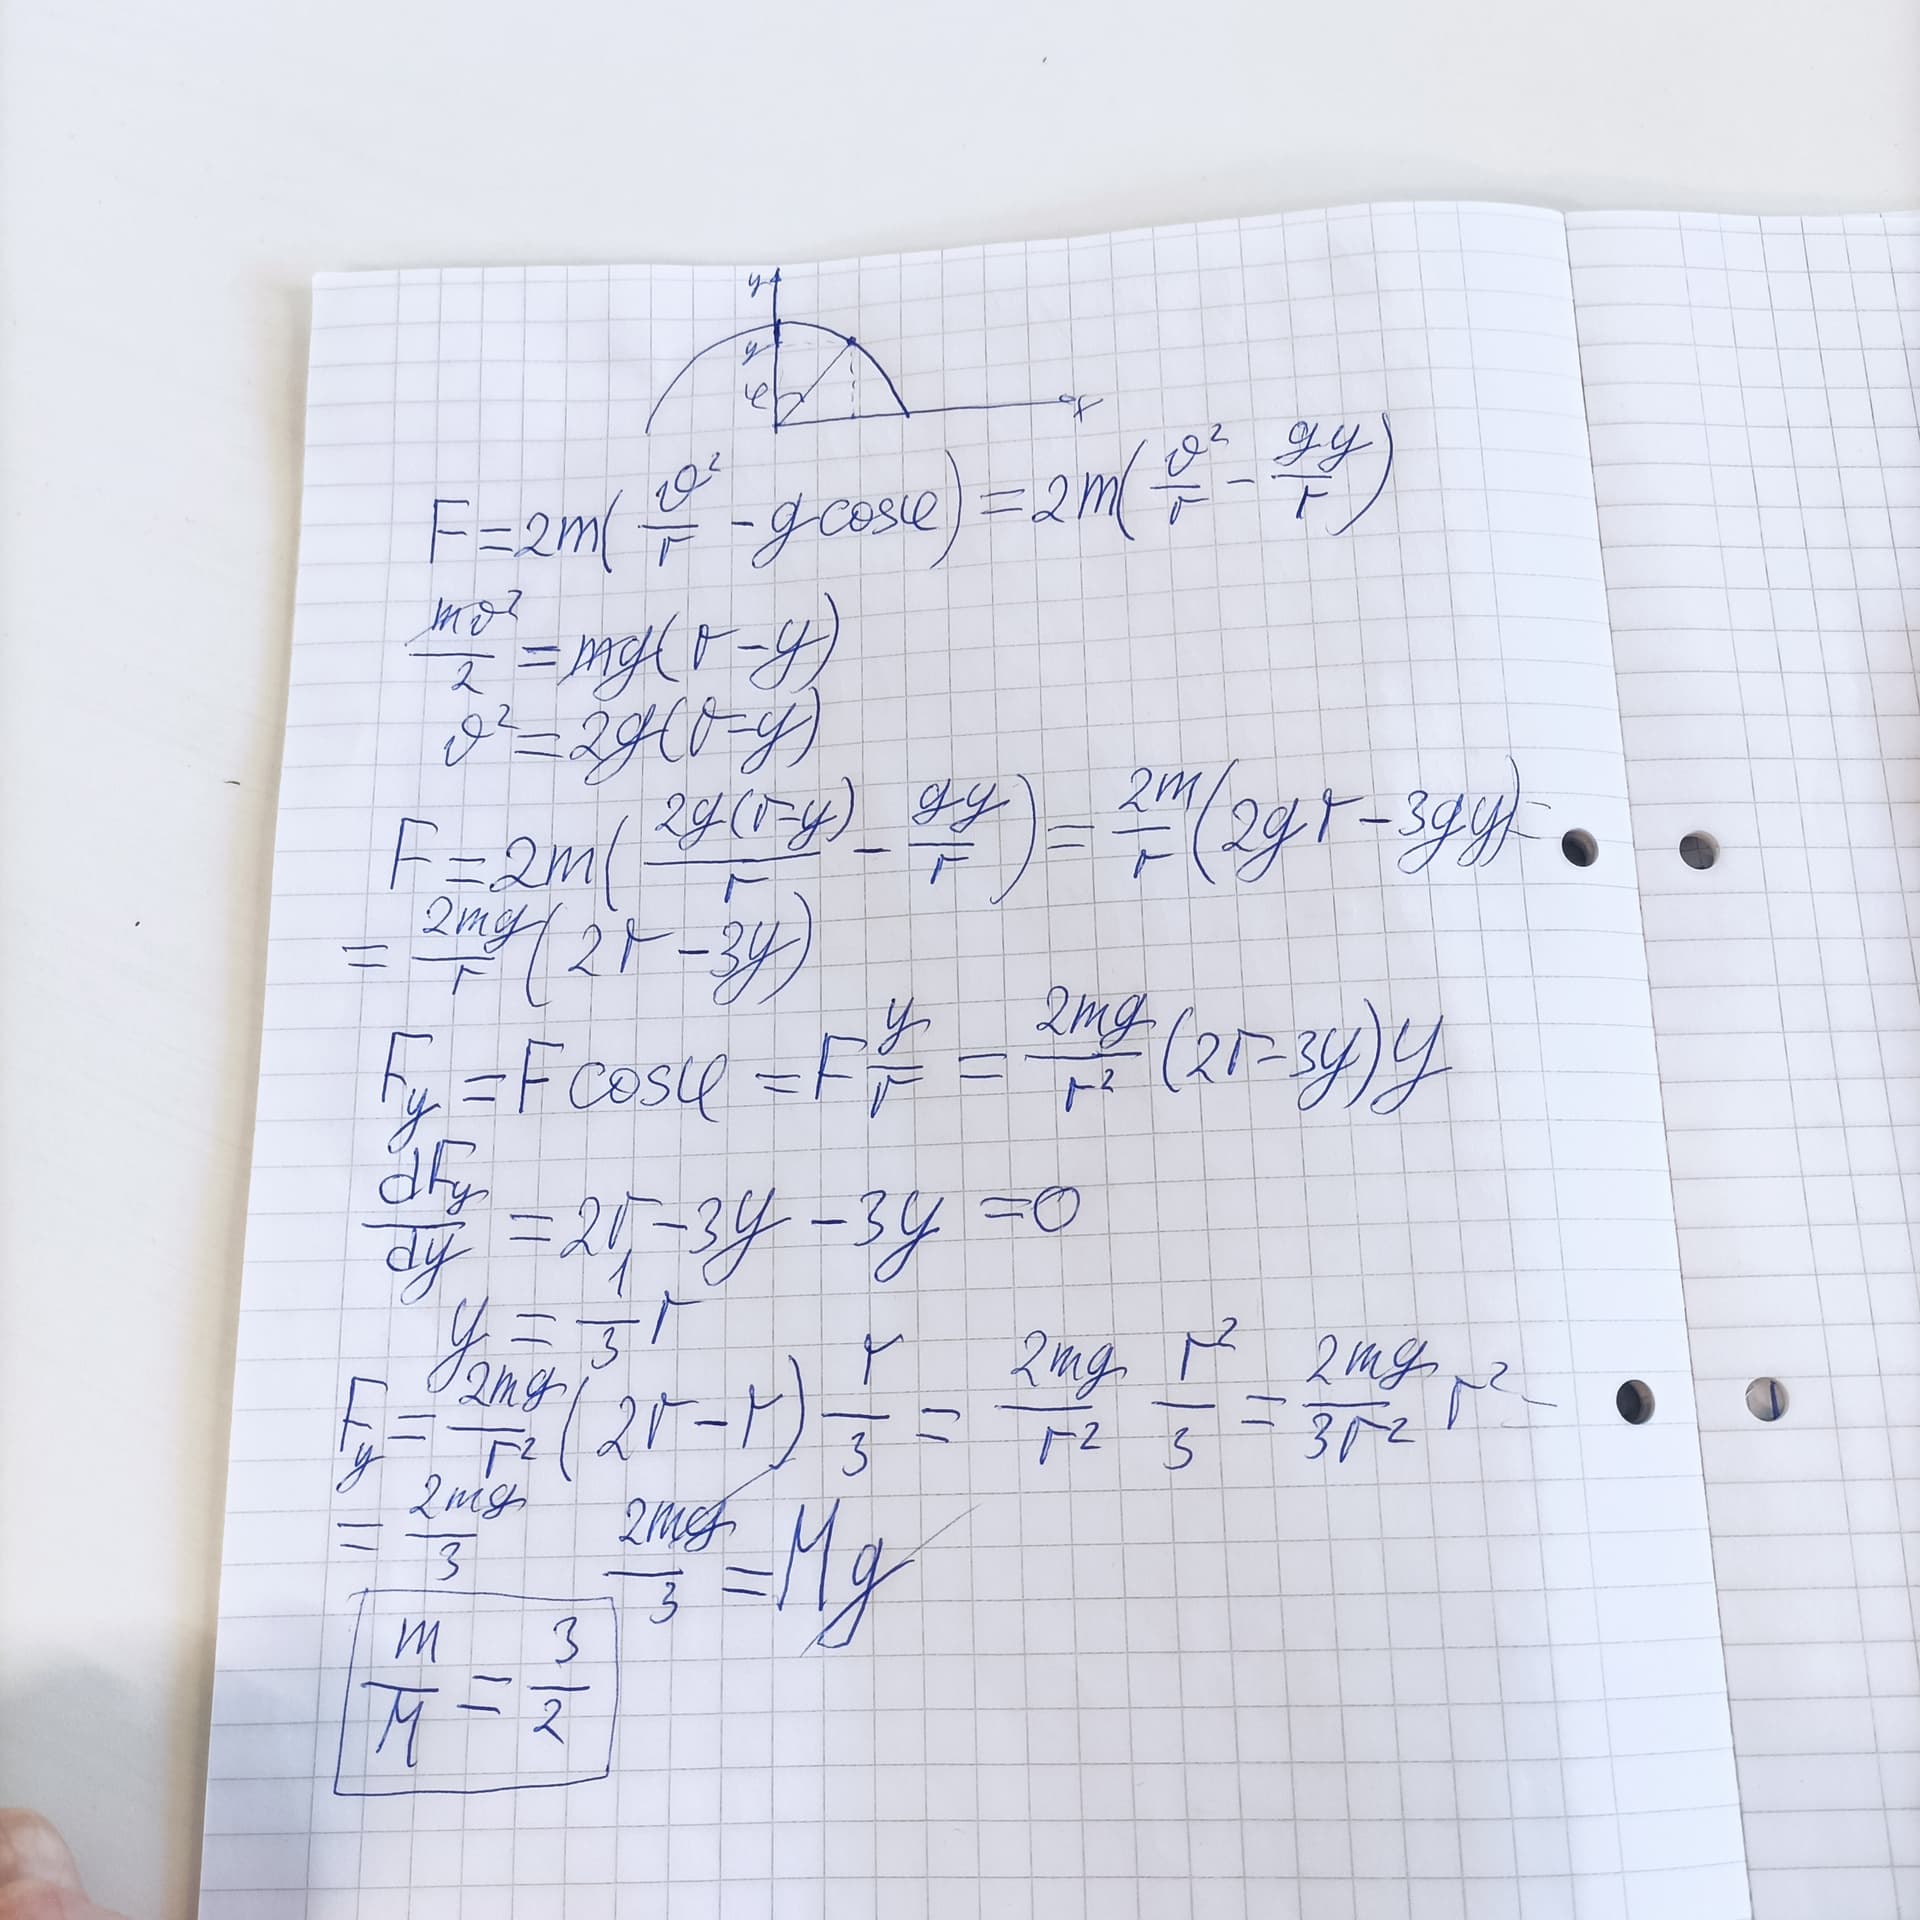 y
y
φ
x
F = 2m(v²/r - g cosφ) = 2m(v²/r - gy/r)
mv²/2 = mg(r - y)
v² = 2g(r - y)
F = 2m(2g(r-y)/r - gy/r) = 2m/r (2gr - 3gy) =
= 2mg/r (2r - 3y)
F_y = F cosφ = F y/r = 2mg/r² (2r - 3y) y
dF_y/dy = 2r - 3y - 3y = 0
y = 1/3 r
F_y = 2mg/r² (2r - r) r/3 = 2mg/r² r²/3 = 2mg/3r² r² =
= 2mg/3 2mg/3 = Mg
m/M = 3/2